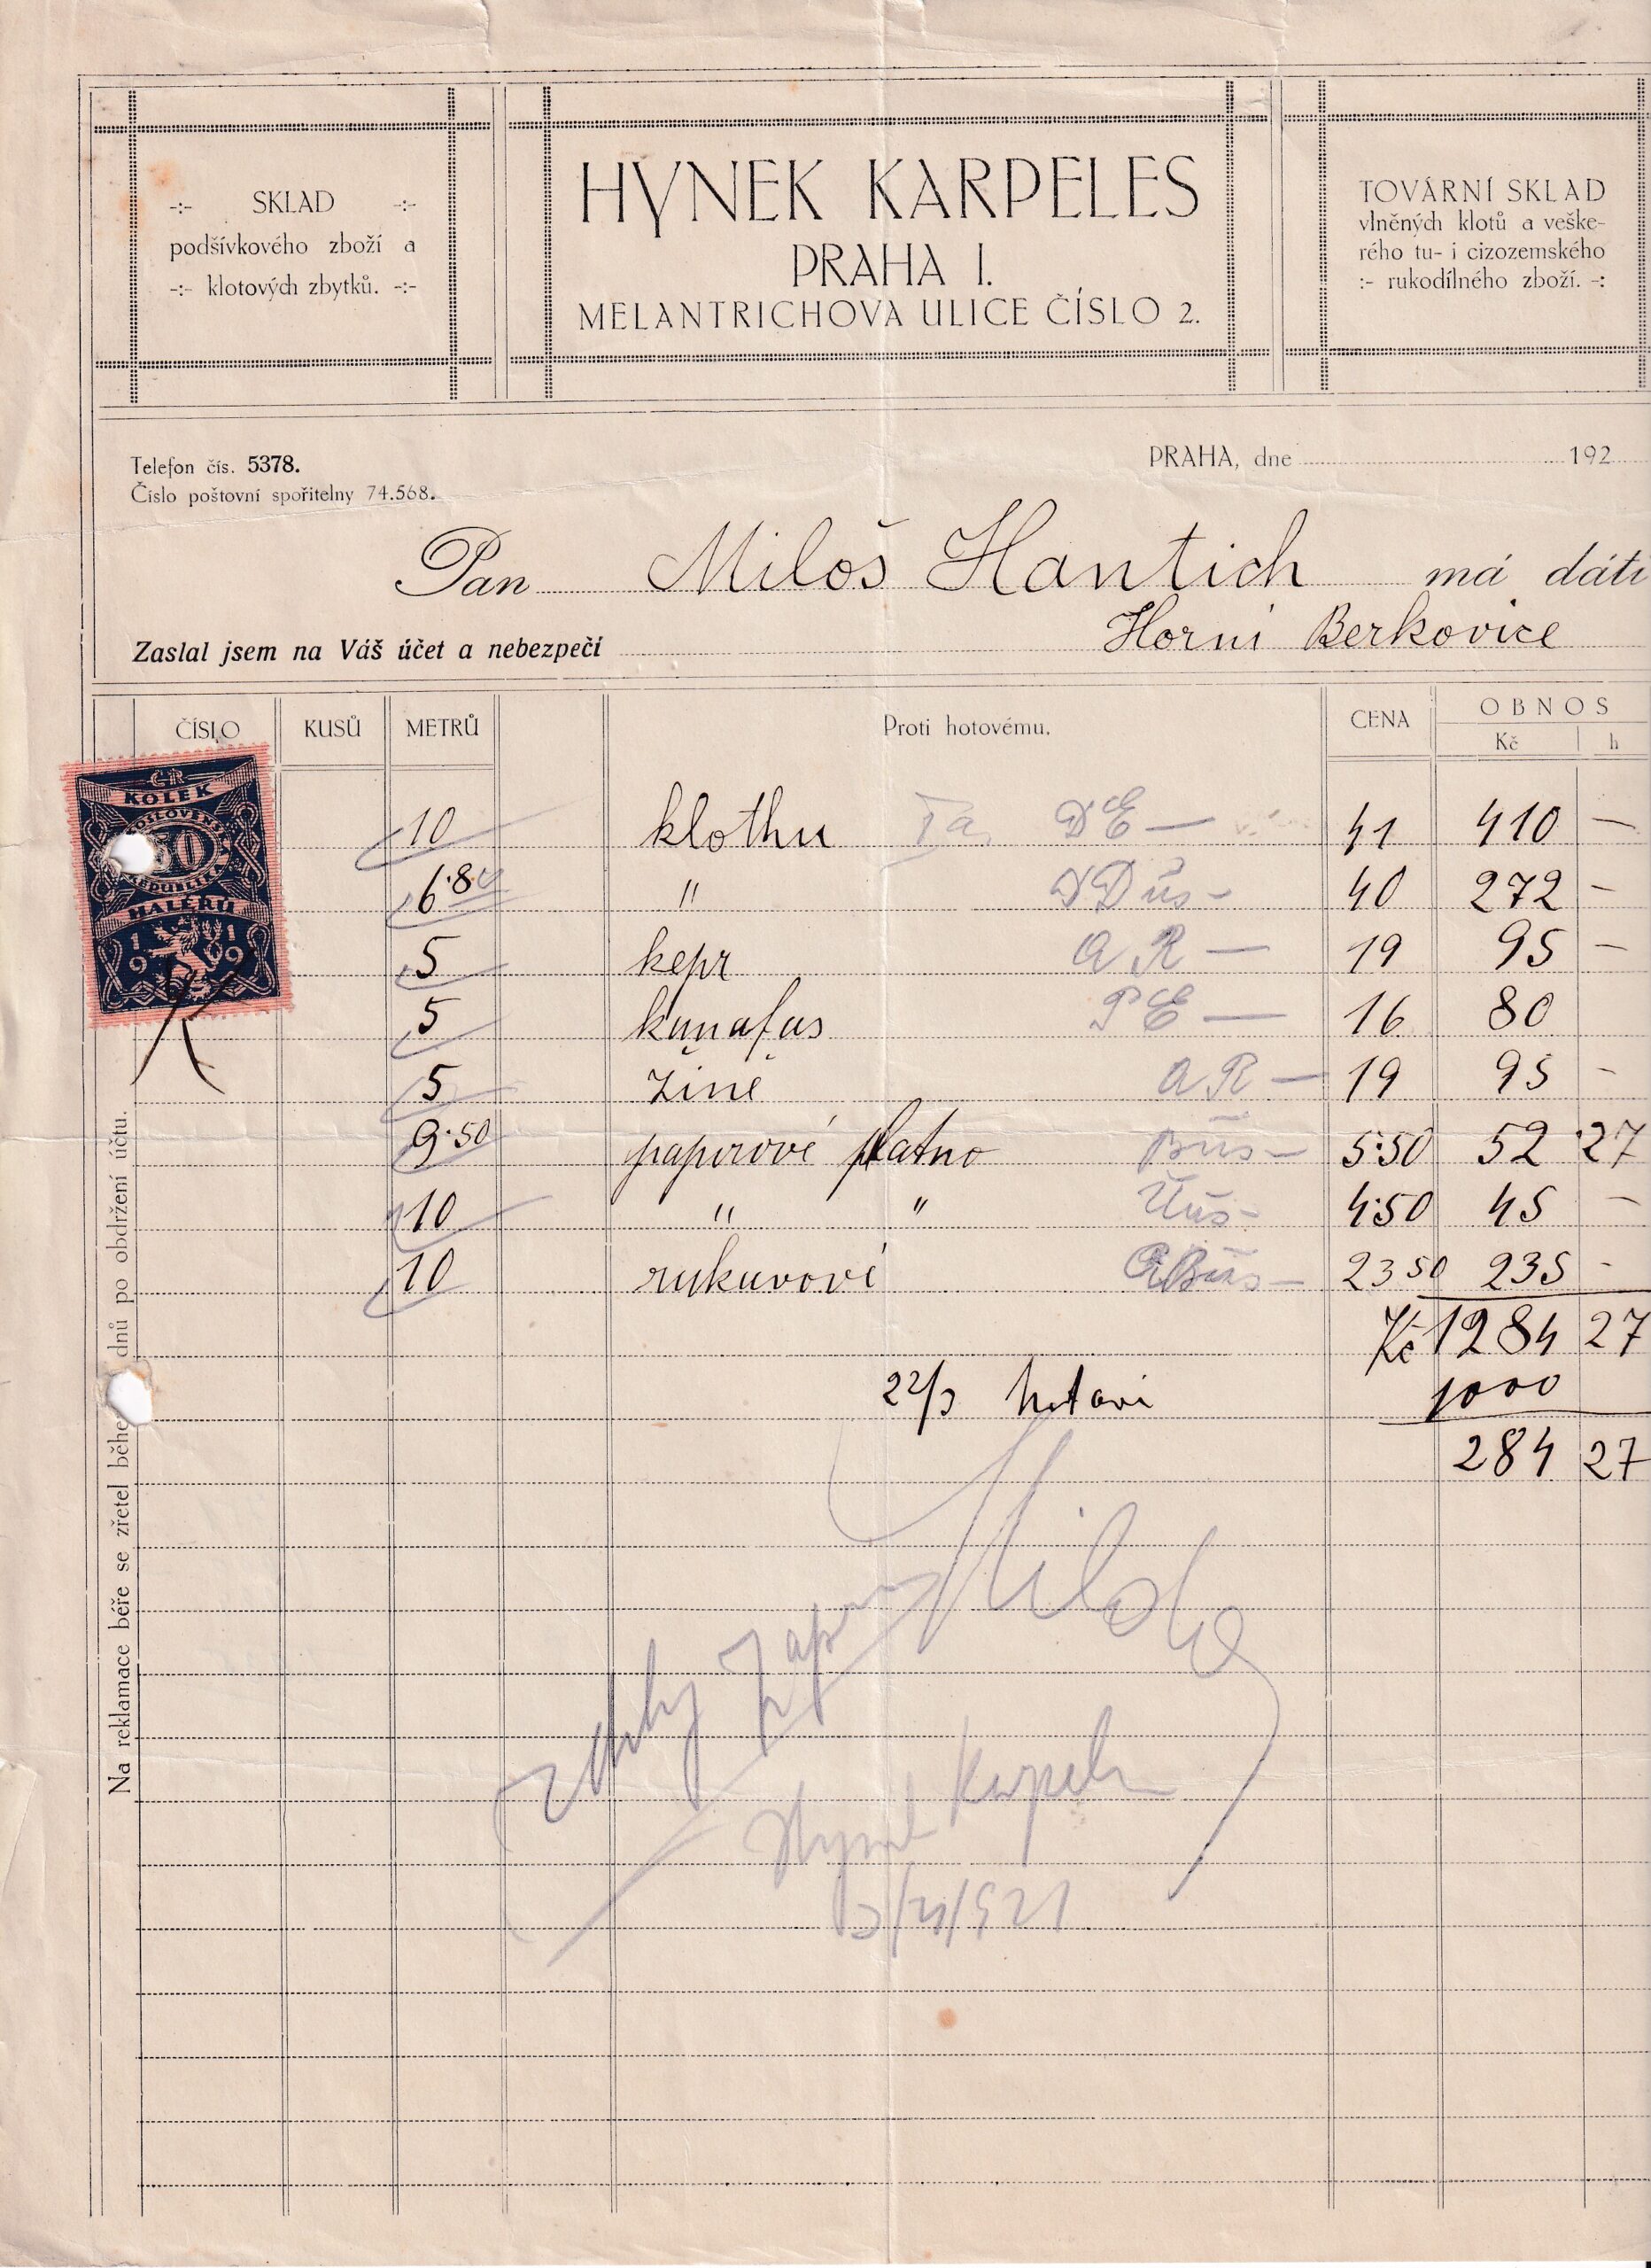 -:- SKLAD -:-
podšívkového zboží a
-:- klotových zbytků. -:-
HYNEK KARPELES
PRAHA I.
MELANTRICHOVA ULICE ČÍSLO 2.
TOVÁRNÍ SKLAD
vlněných klotů a veške-
rého tu- i cizozemského
:- rukodílného zboží. -:
Telefon čís. 5378.
Číslo poštovní spořitelny 74.568.
PRAHA, dne 192
Pan Miloš Hantich má dáti
Horní Berkovice
Zaslal jsem na Váš účet a nebezpečí
ČÍSLO KUSŮ METRŮ Proti hotovému. CENA OBNOS
Kč h
ČR
KOLEK
50
REPUBLIKA
HALÉŘŮ
1919
10 klothu DE — 41 410 —
6·80 " 40 272 —
5 kepr AR — 19 95 —
5 kanafas PE — 16 80
5 žíně AR — 19 95 —
9·50 papírové platno Būs — 5·50 52 27
10 " " 4·50 45 —
10 rukávové 23 50 235 -
Kč 1284 27
22/3 hotově 1000
284 27
Hynek Karpeles
Na reklamace béře se zřetel během dnů po obdržení účtu.